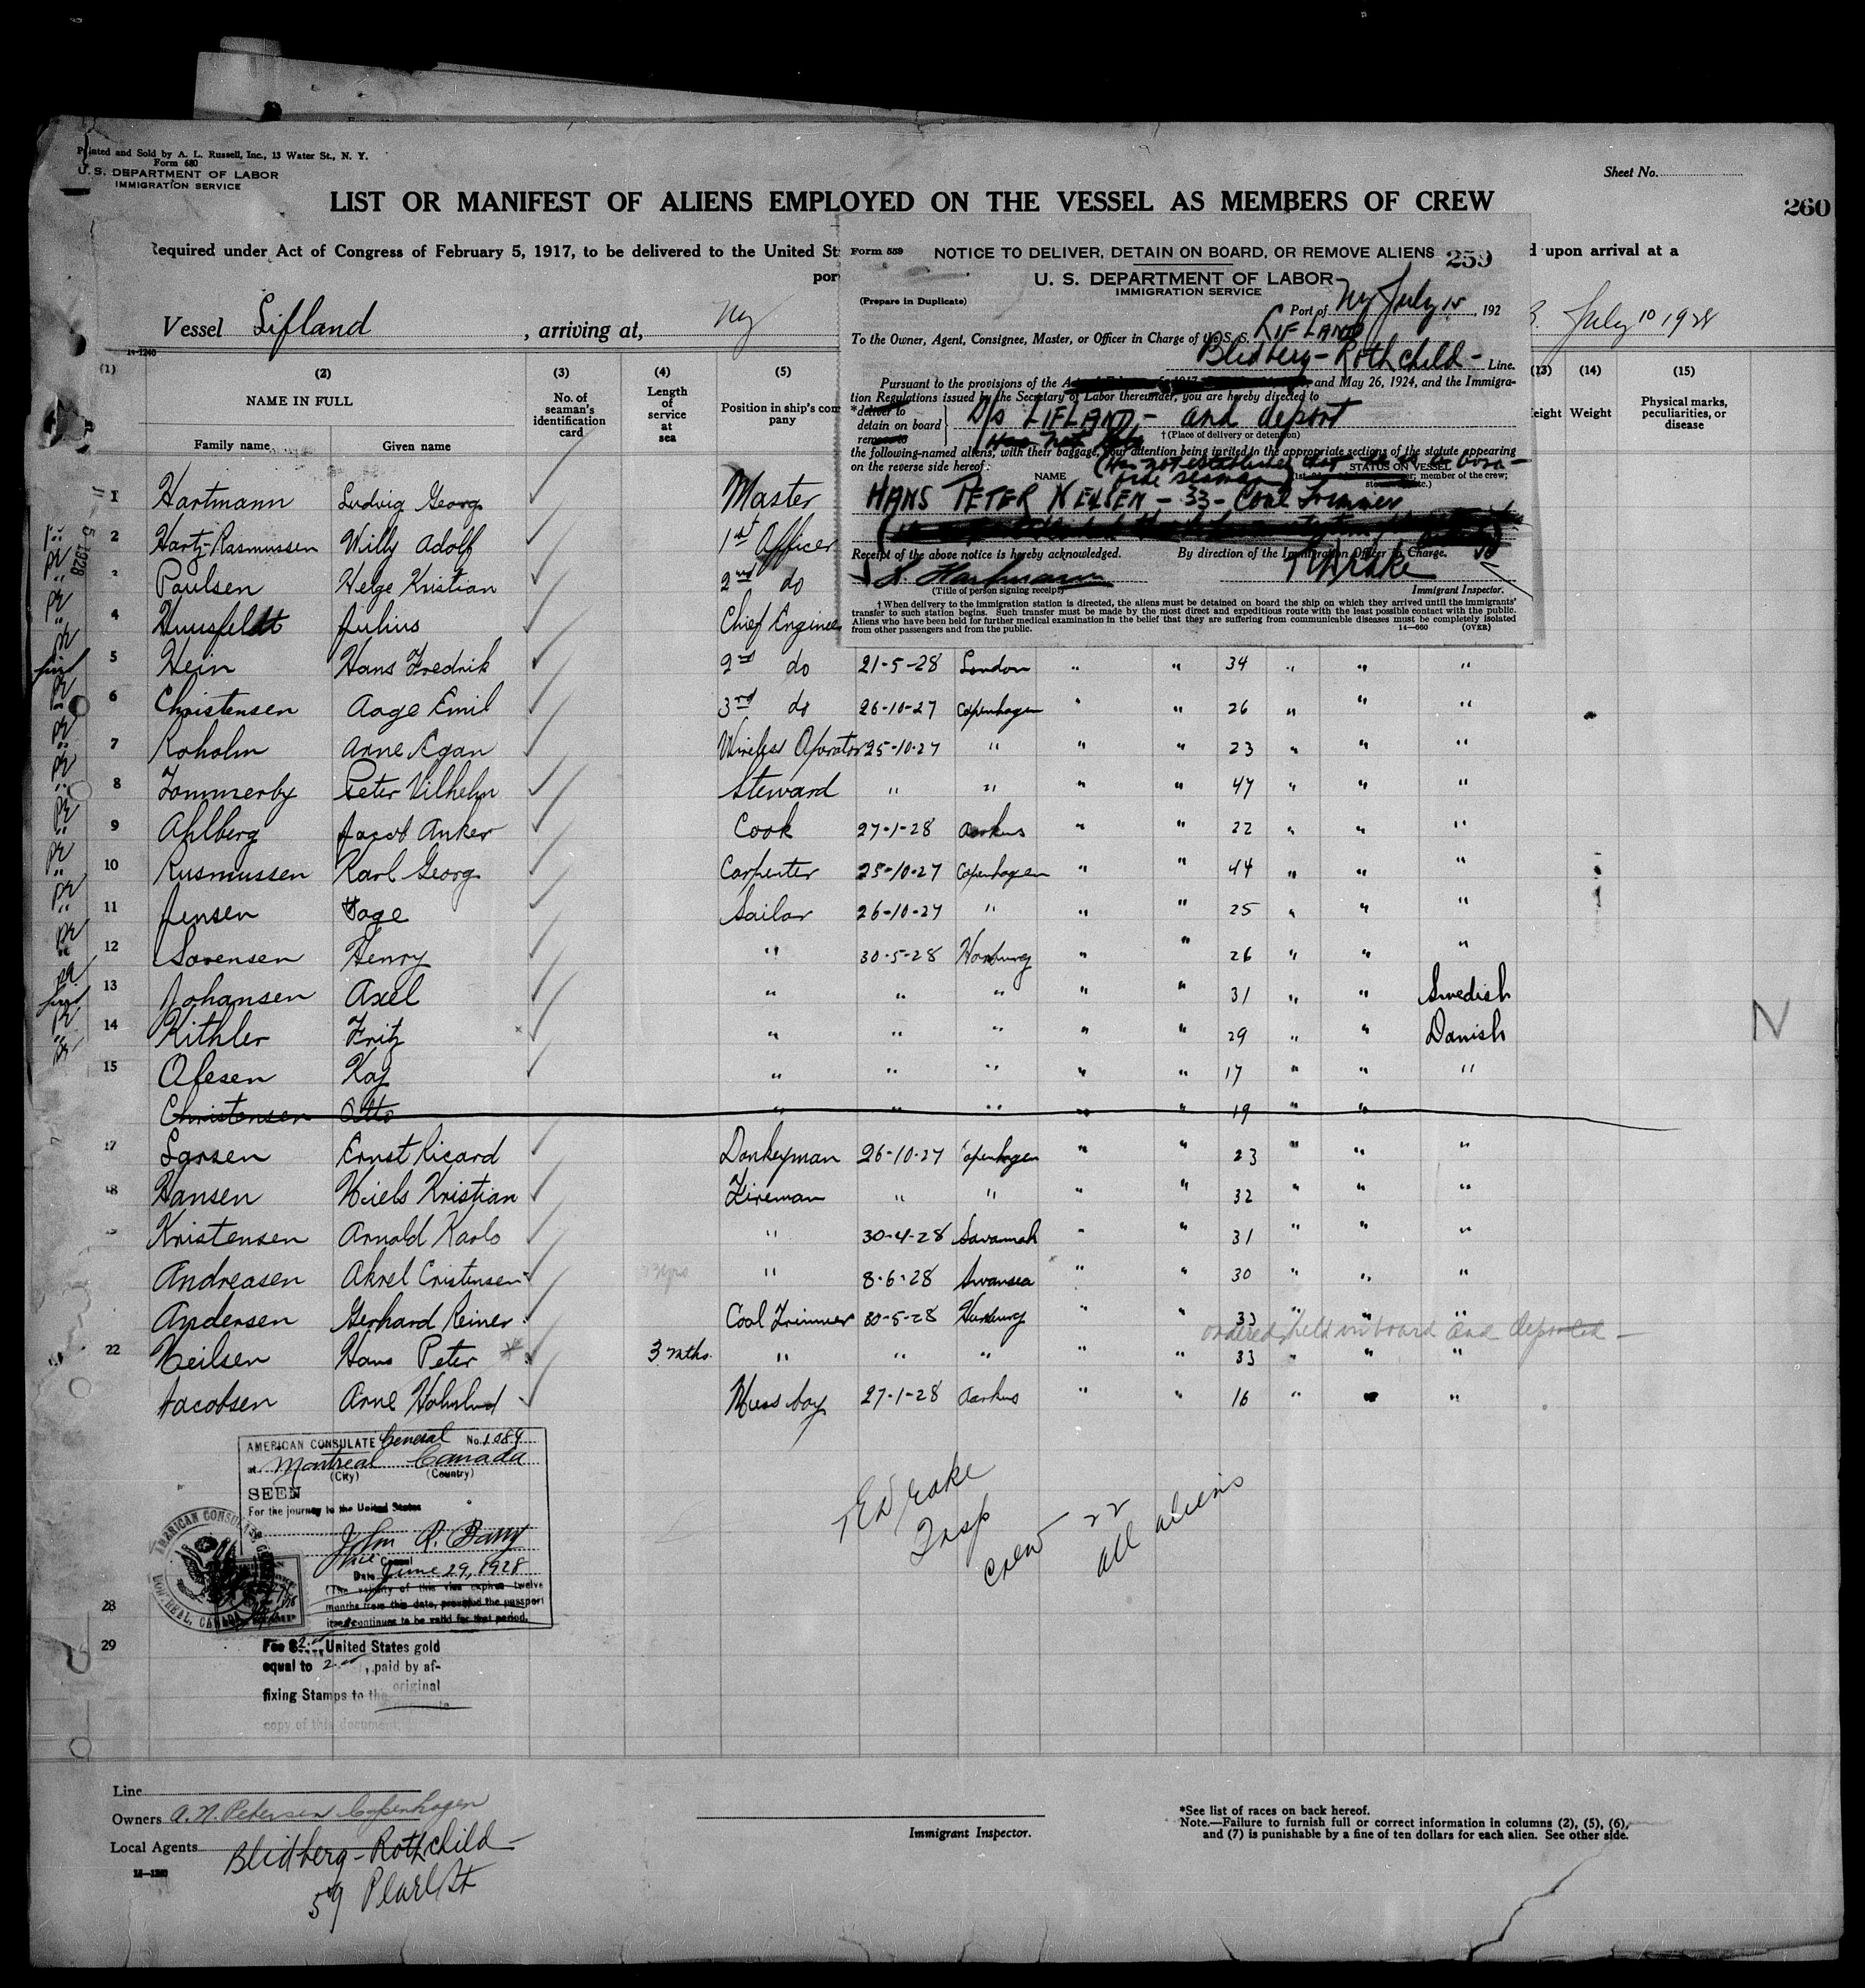 Printed and Sold by A. L. Russell, Inc., 13 Water St., N. Y.
Form 680
U. S. DEPARTMENT OF LABOR
IMMIGRATION SERVICE
Sheet No.
LIST OR MANIFEST OF ALIENS EMPLOYED ON THE VESSEL AS MEMBERS OF CREW
260
Required under Act of Congress of February 5, 1917, to be delivered to the United St
d upon arrival at a
por
Vessel Lifland , arriving at, Ny
July 10 1928
14-1240
Form 559 NOTICE TO DELIVER, DETAIN ON BOARD, OR REMOVE ALIENS 259
U. S. DEPARTMENT OF LABOR
IMMIGRATION SERVICE
(Prepare in Duplicate)
Port of Ny July 15, 192
To the Owner, Agent, Consignee, Master, or Officer in Charge of the S. S. LIFLAND
Blidberg-Rothchild- Line.
Pursuant to the provisions of the and May 26, 1924, and the Immigra-
tion Regulations issued by the Secretary of Labor thereunder, you are hereby directed to
*deliver to
detain on board
remove to
D/s LIFLAND,- and deport
† (Place of delivery or detention)
the following-named aliens, with their baggage, your attention being invited to the appropriate sections of the statute appearing
on the reverse side hereof:
(Has not established that he is a bona-
fide seaman)
NAME STATUS ON VESSEL
member of the crew;
HANS PETER NEILSEN - 33 - Coal Trimmer
Receipt of the above notice is hereby acknowledged. By direction of the Immigration Officer in Charge.
L. Hartmann
(Title of person signing receipt)
Immigrant Inspector.
† When delivery to the immigration station is directed, the aliens must be detained on board the ship on which they arrived until the immigrants'
transfer to such station begins. Such transfer must be made by the most direct and expeditious route with the least possible contact with the public.
Aliens who have been held for further medical examination in the belief that they are suffering from communicable diseases must be completely isolated
from other passengers and from the public. 14—660 (OVER)
(1) (2) (3) (4) (5) (13) (14) (15)
NAME IN FULL
Family name Given name
No. of seaman's identification card
Length of service at sea
Position in ship's com
pany
eight Weight
Physical marks, peculiarities, or disease
1 Hartmann Ludvig Georg Master
2 Hartz-Rasmussen Willy Adolf 1st Officer
Paulsen Helge Kristian 2nd do
4 Huusfeldt Julius Chief Enginee
5 Hein Hans Fredrik 2nd do 21-5-28 London " " 34 " " "
6 Christensen Aage Emil 3rd do 26-10-27 Copenhagen " " 26 " " "
7 Roholm Arne Egan Wireless Operator 25-10-27 " " " 23 " " "
8 Tommerby Peter Vilhelm Steward " " " " 47 " " "
9 Ahlberg Jacob Anker Cook 27-1-28 Aarhus " " 22 " " "
10 Rasmussen Karl Georg Carpenter 25-10-27 Copenhagen " " 44 " " "
11 Jensen Tage Sailor 26-10-27 " " " 25 " " "
12 Sorensen Henry " 30-5-28 Hamburg " " 26 " " "
13 Johansen Axel " " " " " 31 " " Swedish
14 Kithler Fritz " " " " " 29 " " Danish
N
15 Olesen Kaj " " " " " 17 " " "
Christensen Otto " " " " " 19 " " "
17 Larsen Ernst Ricard Donkeyman 26-10-27 Copenhagen " " 23 " " "
18 Hansen Niels Kristian Fireman " " " " 32 " " "
Kristensen Arnold Karlo " 30-4-28 Savannah " " 31 " " "
Andreasen Akrel Cristensen " 8-6-28 Swansea " " 30 " " "
Andersen Gerhard Reiner Coal Trimmer 30-5-28 Hamburg " " 33 " " "
ordered held on board and deported -
22 Neilsen Hans Peter 3 mths. " " " " " 33 " " "
Jacobsen Arne Mess boy 27-1-28 Aarhus " " 16 " " "
AMERICAN CONSULATE General No. 1084
at Montreal Canada
(City) (Country)
SEEN
For the journey to the United States
John R. Barry
Vice Consul
Date June 29, 1928
(The validity of this visa expires twelve
months from this date, provided the passport
itself continues to be valid for that period.
Drake
Insp
Crew 22
all aliens
28
29
Fee $2.00 United States gold
equal to 2.00, paid by af-
fixing Stamps to the original
copy of this document.
Line
Owners A. N. Petersen Copenhagen
Local Agents Blidberg-Rothchild-
59 Pearl St
Immigrant Inspector.
*See list of races on back hereof.
Note.—Failure to furnish full or correct information in columns (2), (5), (6),
and (7) is punishable by a fine of ten dollars for each alien. See other side.